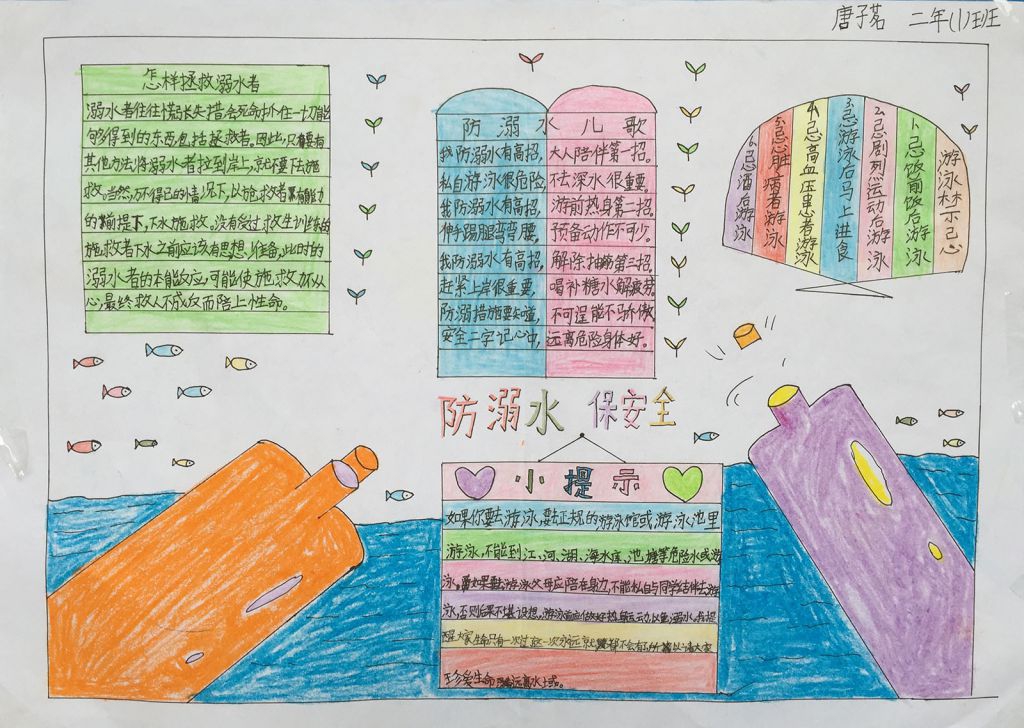 唐子茗 二年(1)班
怎样拯救溺水者
溺水者往往惊慌失措,会死命抓住一切能
够得到的东西,包括拯救者。因此,只要有
其他方法将溺水者拉到岸上,就不要下去施
救。当然,万不得已的情况下,以施救者累有能力
的前提下,下水施救。没有受过救生训练的
施救者下水之前应该有思想准备,此时的
溺水者的本能反应,可能使施救
心,最终救人不成反而陪上性命。
防溺水儿歌
我防溺水有高招,大人陪伴第一招。
私自游泳很危险,不去深水很重要。
我防溺水有高招,游前热身第二招。
伸手踢腿弯弯腰,预备动作不可少。
我防溺水有高招,解除抽筋第三招。
赶紧上岸很重要,喝补糖水解疲劳。
防溺措施要知道,不可逞能不骄傲。
安全二字记心中,远离危险身体好。
游泳禁忌
1.忌饭前饭后游泳
2.忌剧烈运动后游泳
3.忌游泳后马上进食
4.忌高血压患者游泳
5.忌心脏病者游泳
6.忌酒后游泳
防溺水 保安全
小提示
如果你要去游泳,要去正规的游泳馆或游泳池里
游泳,不能到江、河、湖、海、水库、池塘等危险水域游
泳,如果要去游泳父母应陪在身边,不能私自与同学结伴去游
泳,否则后果不堪设想,游泳前应做好热身运动以免溺水,我提
醒大家生命只有一次过这一次永远就都不会有了所以请大家
珍爱生命远离水域。